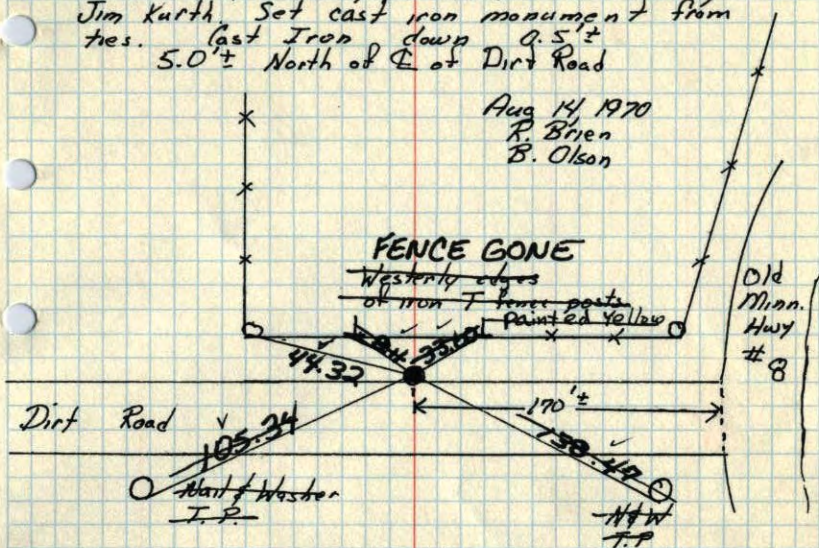 Jim Kurth. Set cast iron monument from
ties. Cast Iron down 0.5'±
5.0'± North of ℄ of Dirt Road
Aug 14 1970
R. Brien
B. Olson
FENCE GONE
Westerly edges
of iron T fence posts
painted yellow
Old
Minn.
Hwy
#8
44.32
33.60
170'±
Dirt Road
105.34
138.47
Nail & Washer
T.P.
N&W
T.P